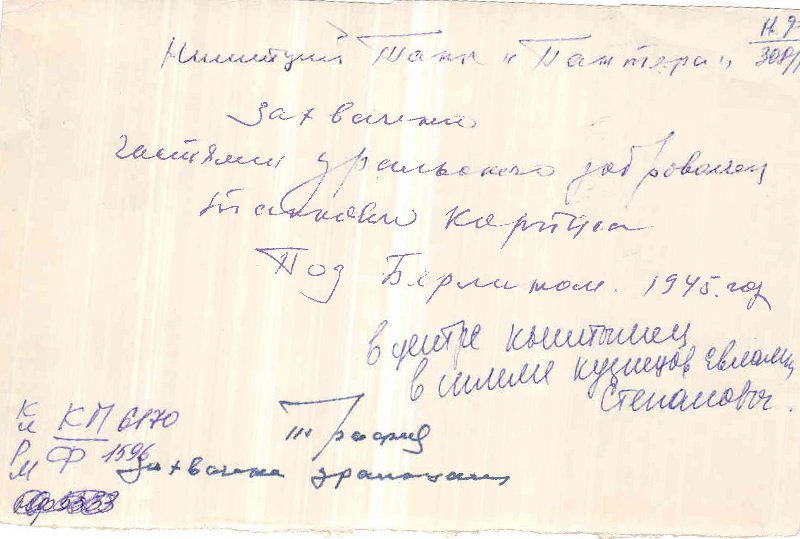 Н. 9
308/
Немецкий Танк "Пантера"
Захвачено
частями уральского добровольч
танково корпуса
Под Берлином. 1945. год
в центре кыштымец
в шлеме кузнецов Евлампи
Степанович.
К КП 6170
Р Ф 1596
М
Трофид
Захвачена уральцами